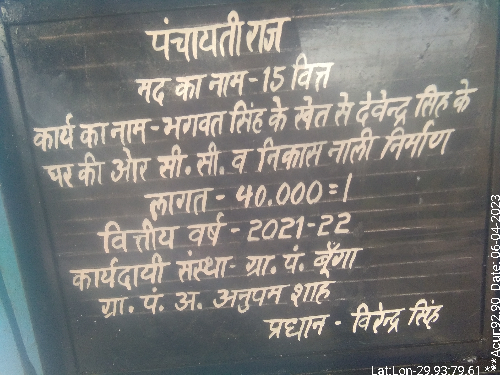 पंचायती राज
मद का नाम - 15 वित्त
कार्य का नाम - भगवत सिंह के खेत से देवेन्द्र सिंह के
घर की ओर सी. सी. व निकास नाली निर्माण
लागत - 40.000=/
वित्तीय वर्ष - 2021-22
कार्यदायी संस्था - ग्रा. पं. बूँगा
ग्रा. पं. अ. अनुपम शाह
प्रधान - विरेन्द्र सिंह
Lat:Lon-29.93:79.61 ***Acur:92.90 Date: 06-04-2023